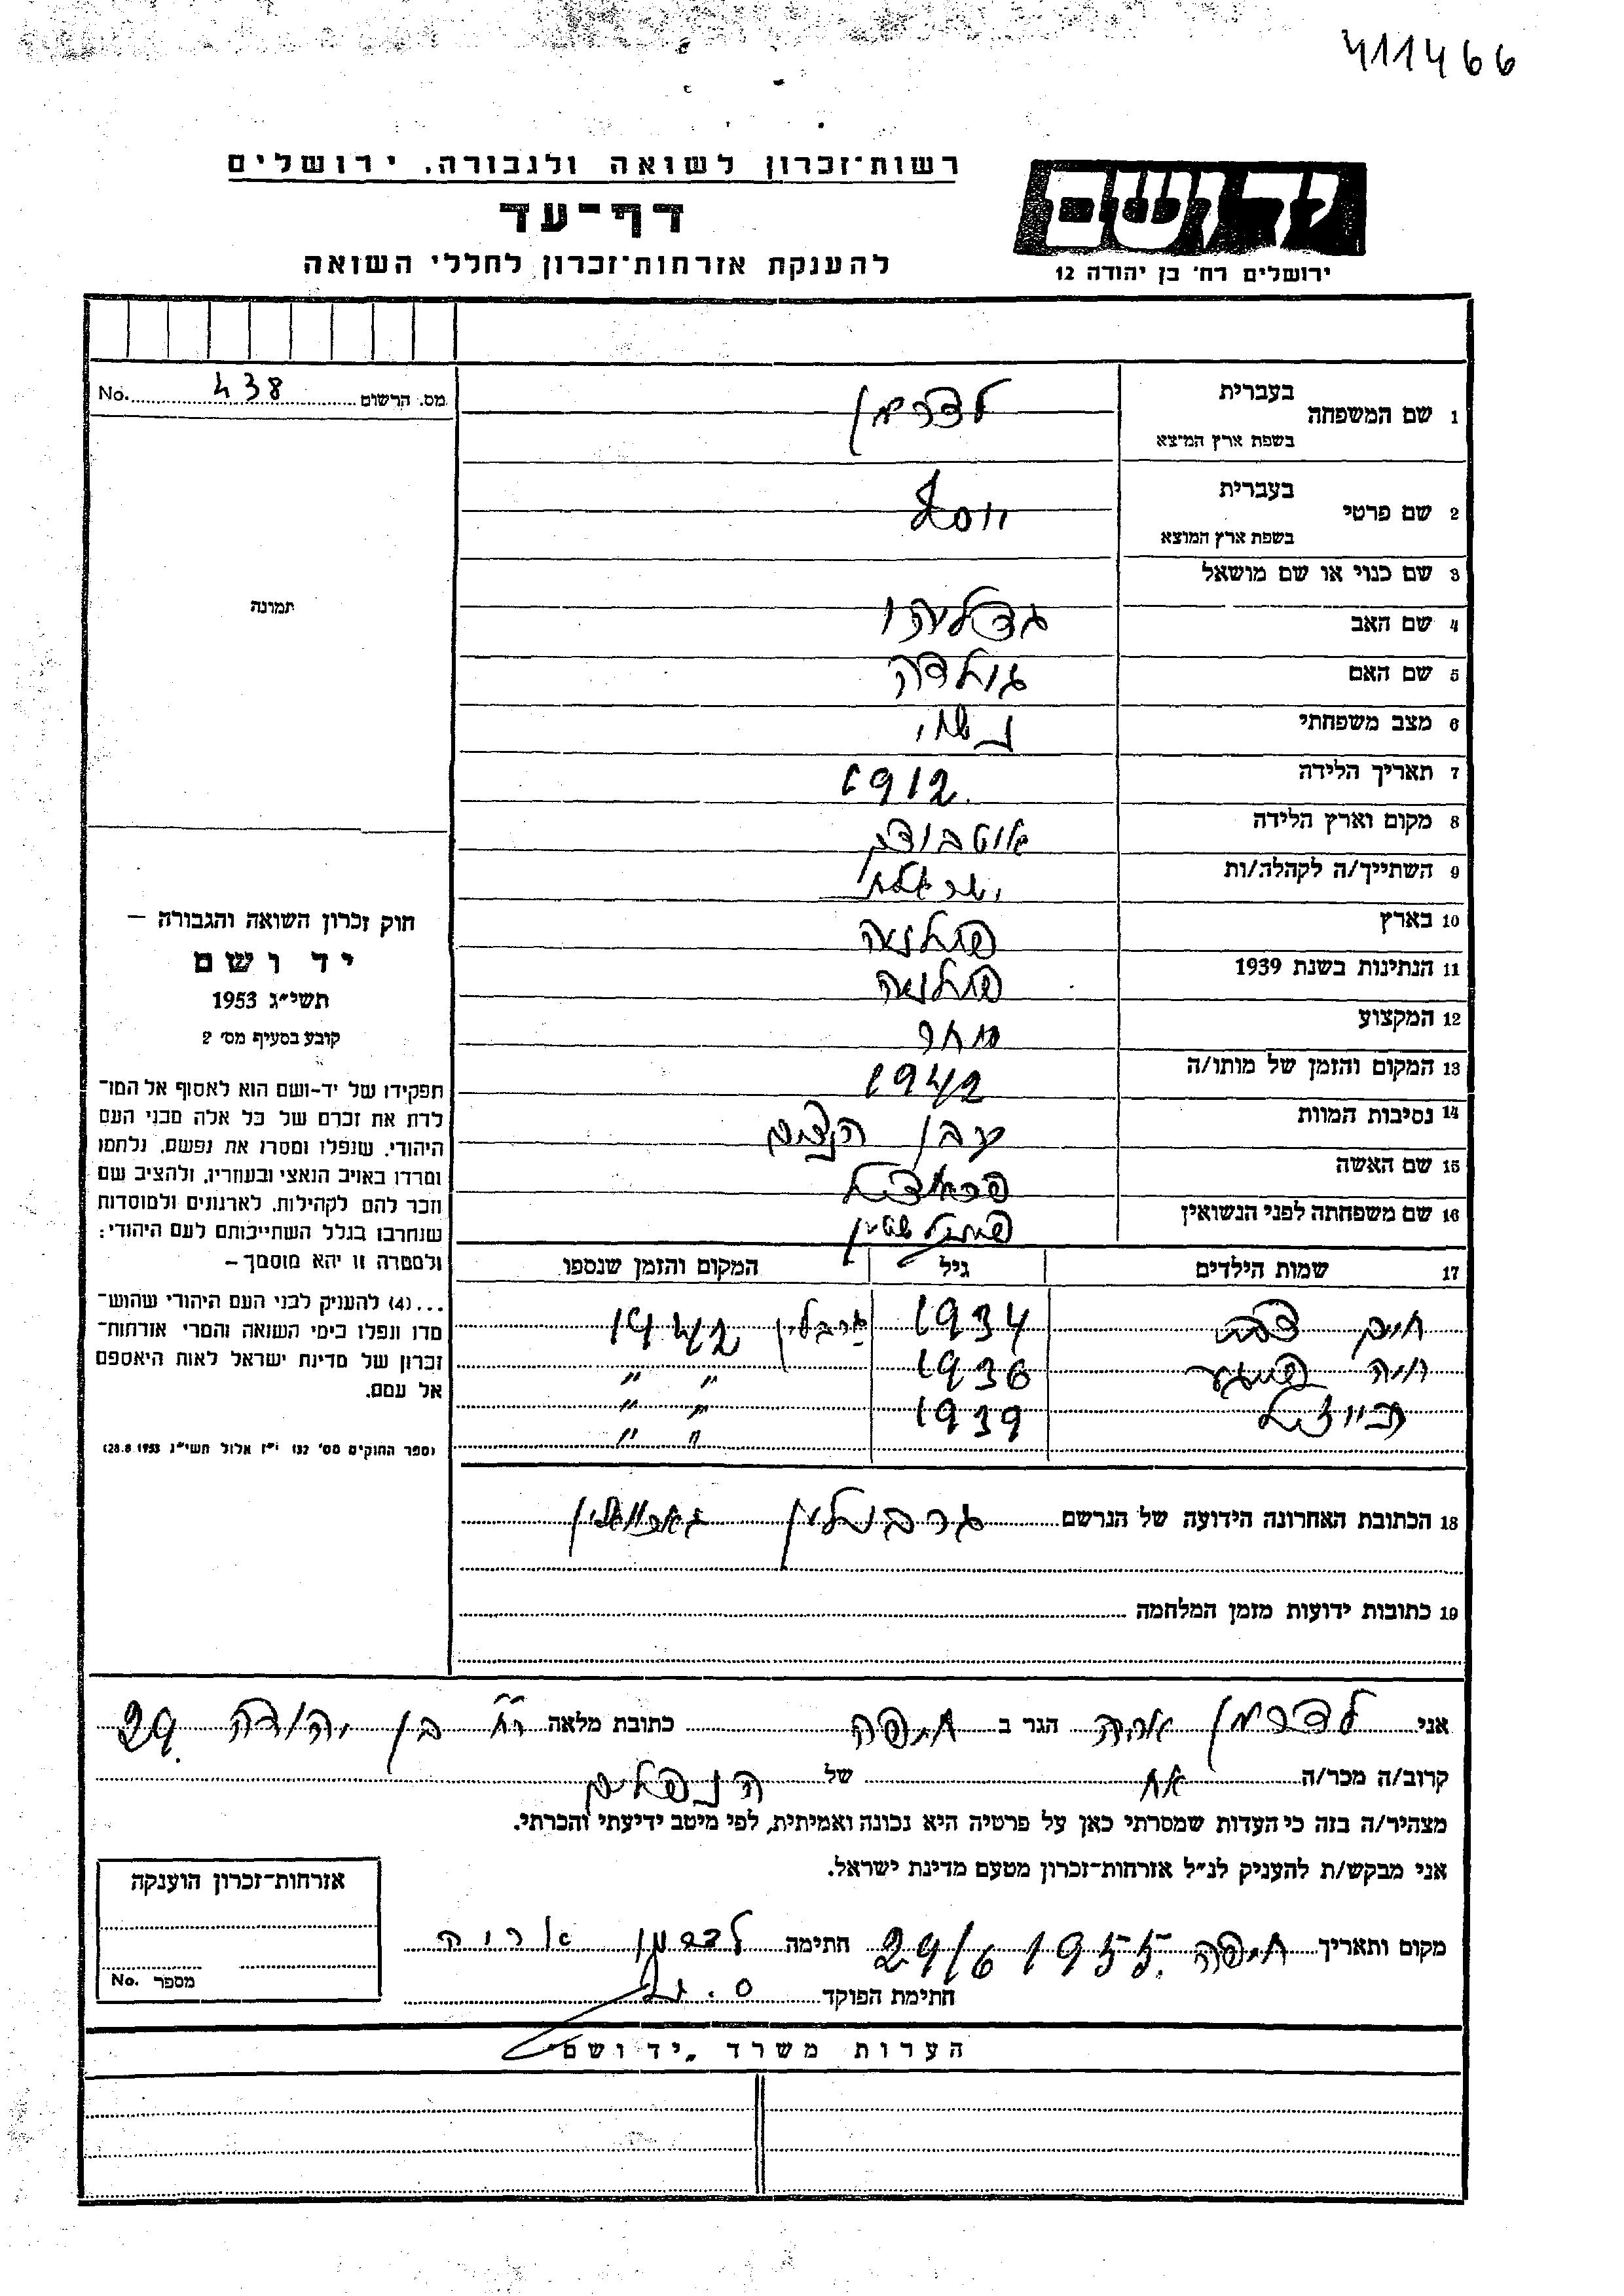 411466
יד ושם
ירושלים רח׳ בן יהודה 12
רשות־זכרון לשואה ולגבורה, ירושלים
דף־עד
להענקת אזרחות־זכרון לחללי השואה
מס. הרשום 438 No.
תמונה
חוק זכרון השואה והגבורה –
יד ושם
תשי״ג 1953
קובע בסעיף מס׳ 2
תפקידו של יד-ושם הוא לאסוף אל המו־
לדת את זכרם של כל אלה מבני העם
היהודי, שנפלו ומסרו את נפשם, נלחמו
ומרדו באויב הנאצי ובעוזריו, ולהציב שם
וזכר להם לקהילות, לארגונים ולמוסדות
שנחרבו בגלל השתייכותם לעם היהודי;
ולמטרה זו יהא מוסמך –
...(4) להעניק לבני העם היהודי שהוש־
מדו ונפלו בימי השואה והמרי אזרחות־
זכרון של מדינת ישראל לאות היאספם
אל עמם.
(ספר החוקים מס׳ 132 י״ז אלול תשי״ג 28.8.1953)
1 שם המשפחה בעברית לדרמן
בשפת ארץ המוצא
2 שם פרטי בעברית יוסף
בשפת ארץ המוצא
3 שם כנוי או שם מושאל
4 שם האב גדליהו
5 שם האם גולדה
6 מצב משפחתי נשוי
7 תאריך הלידה 1912
8 מקום וארץ הלידה
9 השתייך/ה לקהלה/ות
10 בארץ פולניה
11 הנתינות בשנת 1939 פולניה
12 המקצוע סוחר
13 המקום והזמן של מותו/ה 1942
14 נסיבות המוות
15 שם האשה
16 שם משפחתה לפני הנשואין
17 שמות הילדים גיל המקום והזמן שנספו
חיים 1934 1942
חיה 1936 ״ ״
1939 ״ ״
״ ״
18 הכתובת האחרונה הידועה של הנרשם
19 כתובות ידועות מזמן המלחמה
אני לדרמן אריה הגר ב חיפה כתובת מלאה רח׳ בן יהודה 29
קרוב/ה מכר/ה אח של הנפלים
מצהיר/ה בזה כי העדות שמסרתי כאן על פרטיה היא נכונה ואמיתית, לפי מיטב ידיעתי והכרתי.
אני מבקש/ת להעניק לנ״ל אזרחות־זכרון מטעם מדינת ישראל.
מקום ותאריך חיפה 29/6 1955 חתימה לדרמן אריה
חתימת הפוקד
אזרחות־זכרון הוענקה
מספר No.
הערות משרד „יד ושם״